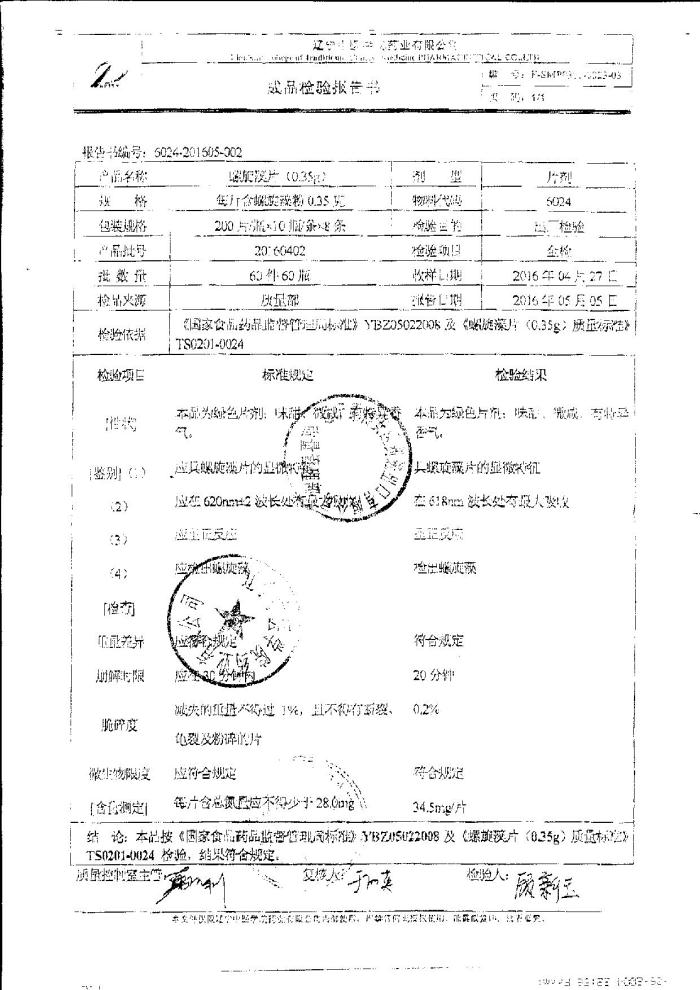 药业有限公司
PHARMACEUTICAL CO.,LTD
成品检验报告书
编 号:
页 码: 1/1
报告书编号: 6024-201605-002
产品名称 螺旋藻片(0.35g) 剂 型 片剂
规 格 每片含螺旋藻粉 0.35 克 物料代码 6024
包装规格 200 片/瓶×10 瓶/条×8 条 检验目的 检验
产品批号 20160402 检验项目 全检
批 数 量 60 件 60 瓶 收样日期 2016 年 04 月 27 日
检品来源 质量部 报告日期 2016 年 05 月 05 日
检验依据 《国家食品药品监督管理局标准》YBZ05022008 及《螺旋藻片(0.35g)质量标准》
TS0201-0024
检验项目 标准规定 检验结果
[性状] 本品为绿色片剂;味甜、微咸、有特异香 本品为绿色片剂;味甜、微咸、有特异
气。 香气。
[鉴别](1) 应具螺旋藻片的显微特征 具螺旋藻片的显微特征
(2) 应在 620nm±2 波长处有最大吸收 在 618nm 波长处有最大吸收
(3) 应呈正反应 呈正反应
(4) 应检出螺旋藻 检出螺旋藻
[检查]
重量差异 应符合规定 符合规定
崩解时限 应在 30 分钟内 20 分钟
脆碎度 减失的重量不得过 1%,且不得有断裂、 0.2%
龟裂及粉碎的片
微生物限度 应符合规定 符合规定
[含量测定] 每片含总氮量应不得少于 28.0mg 34.5mg/片
结 论:本品按《国家食品药品监督管理局标准》YBZ05022008 及《螺旋藻片(0.35g)质量标准》
TS0201-0024 检验,结果符合规定。
质量控制室主管: 复核人: 检验人: 顾新玉